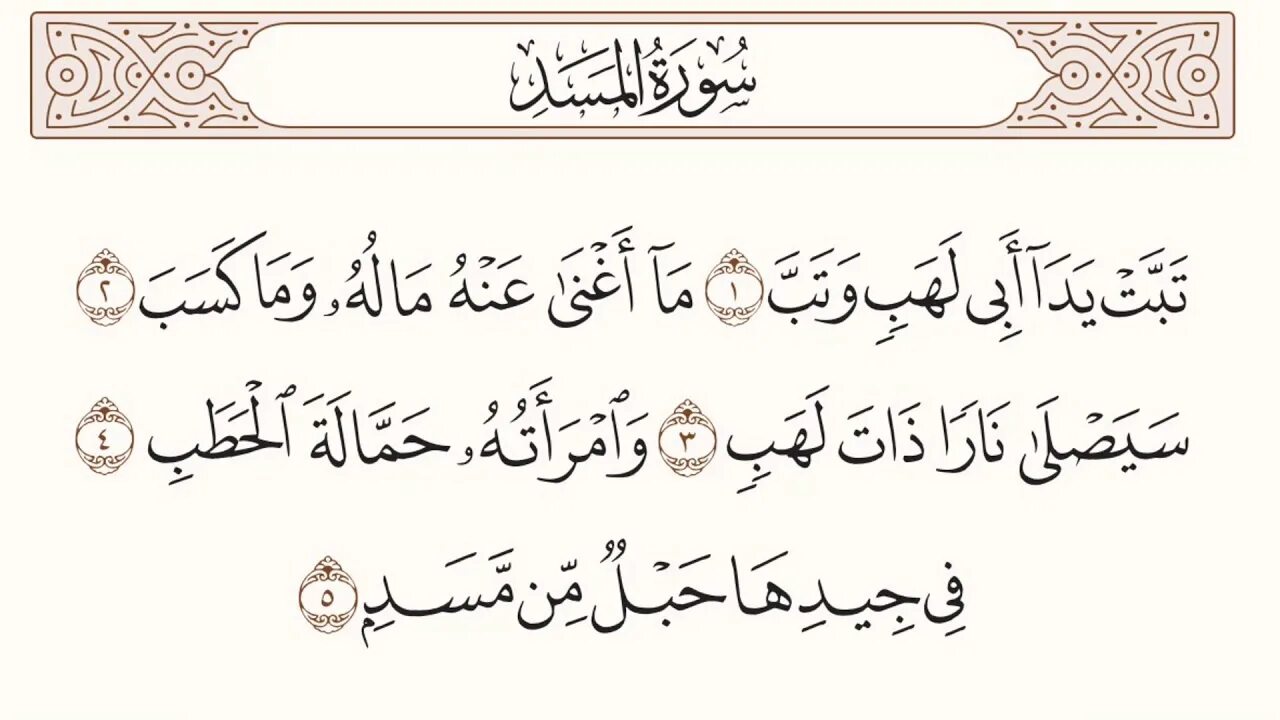 سُورَةُ المَسَدِ
تَبَّتۡ يَدَآ أَبِي لَهَبٖ وَتَبَّ ١ مَآ أَغۡنَىٰ عَنۡهُ مَالُهُۥ وَمَا كَسَبَ ٢
سَيَصۡلَىٰ نَارٗا ذَاتَ لَهَبٖ ٣ وَٱمۡرَأَتُهُۥ حَمَّالَةَ ٱلۡحَطَبِ ٤
فِي جِيدِهَا حَبۡلٞ مِّن مَّسَدِۭ ٥